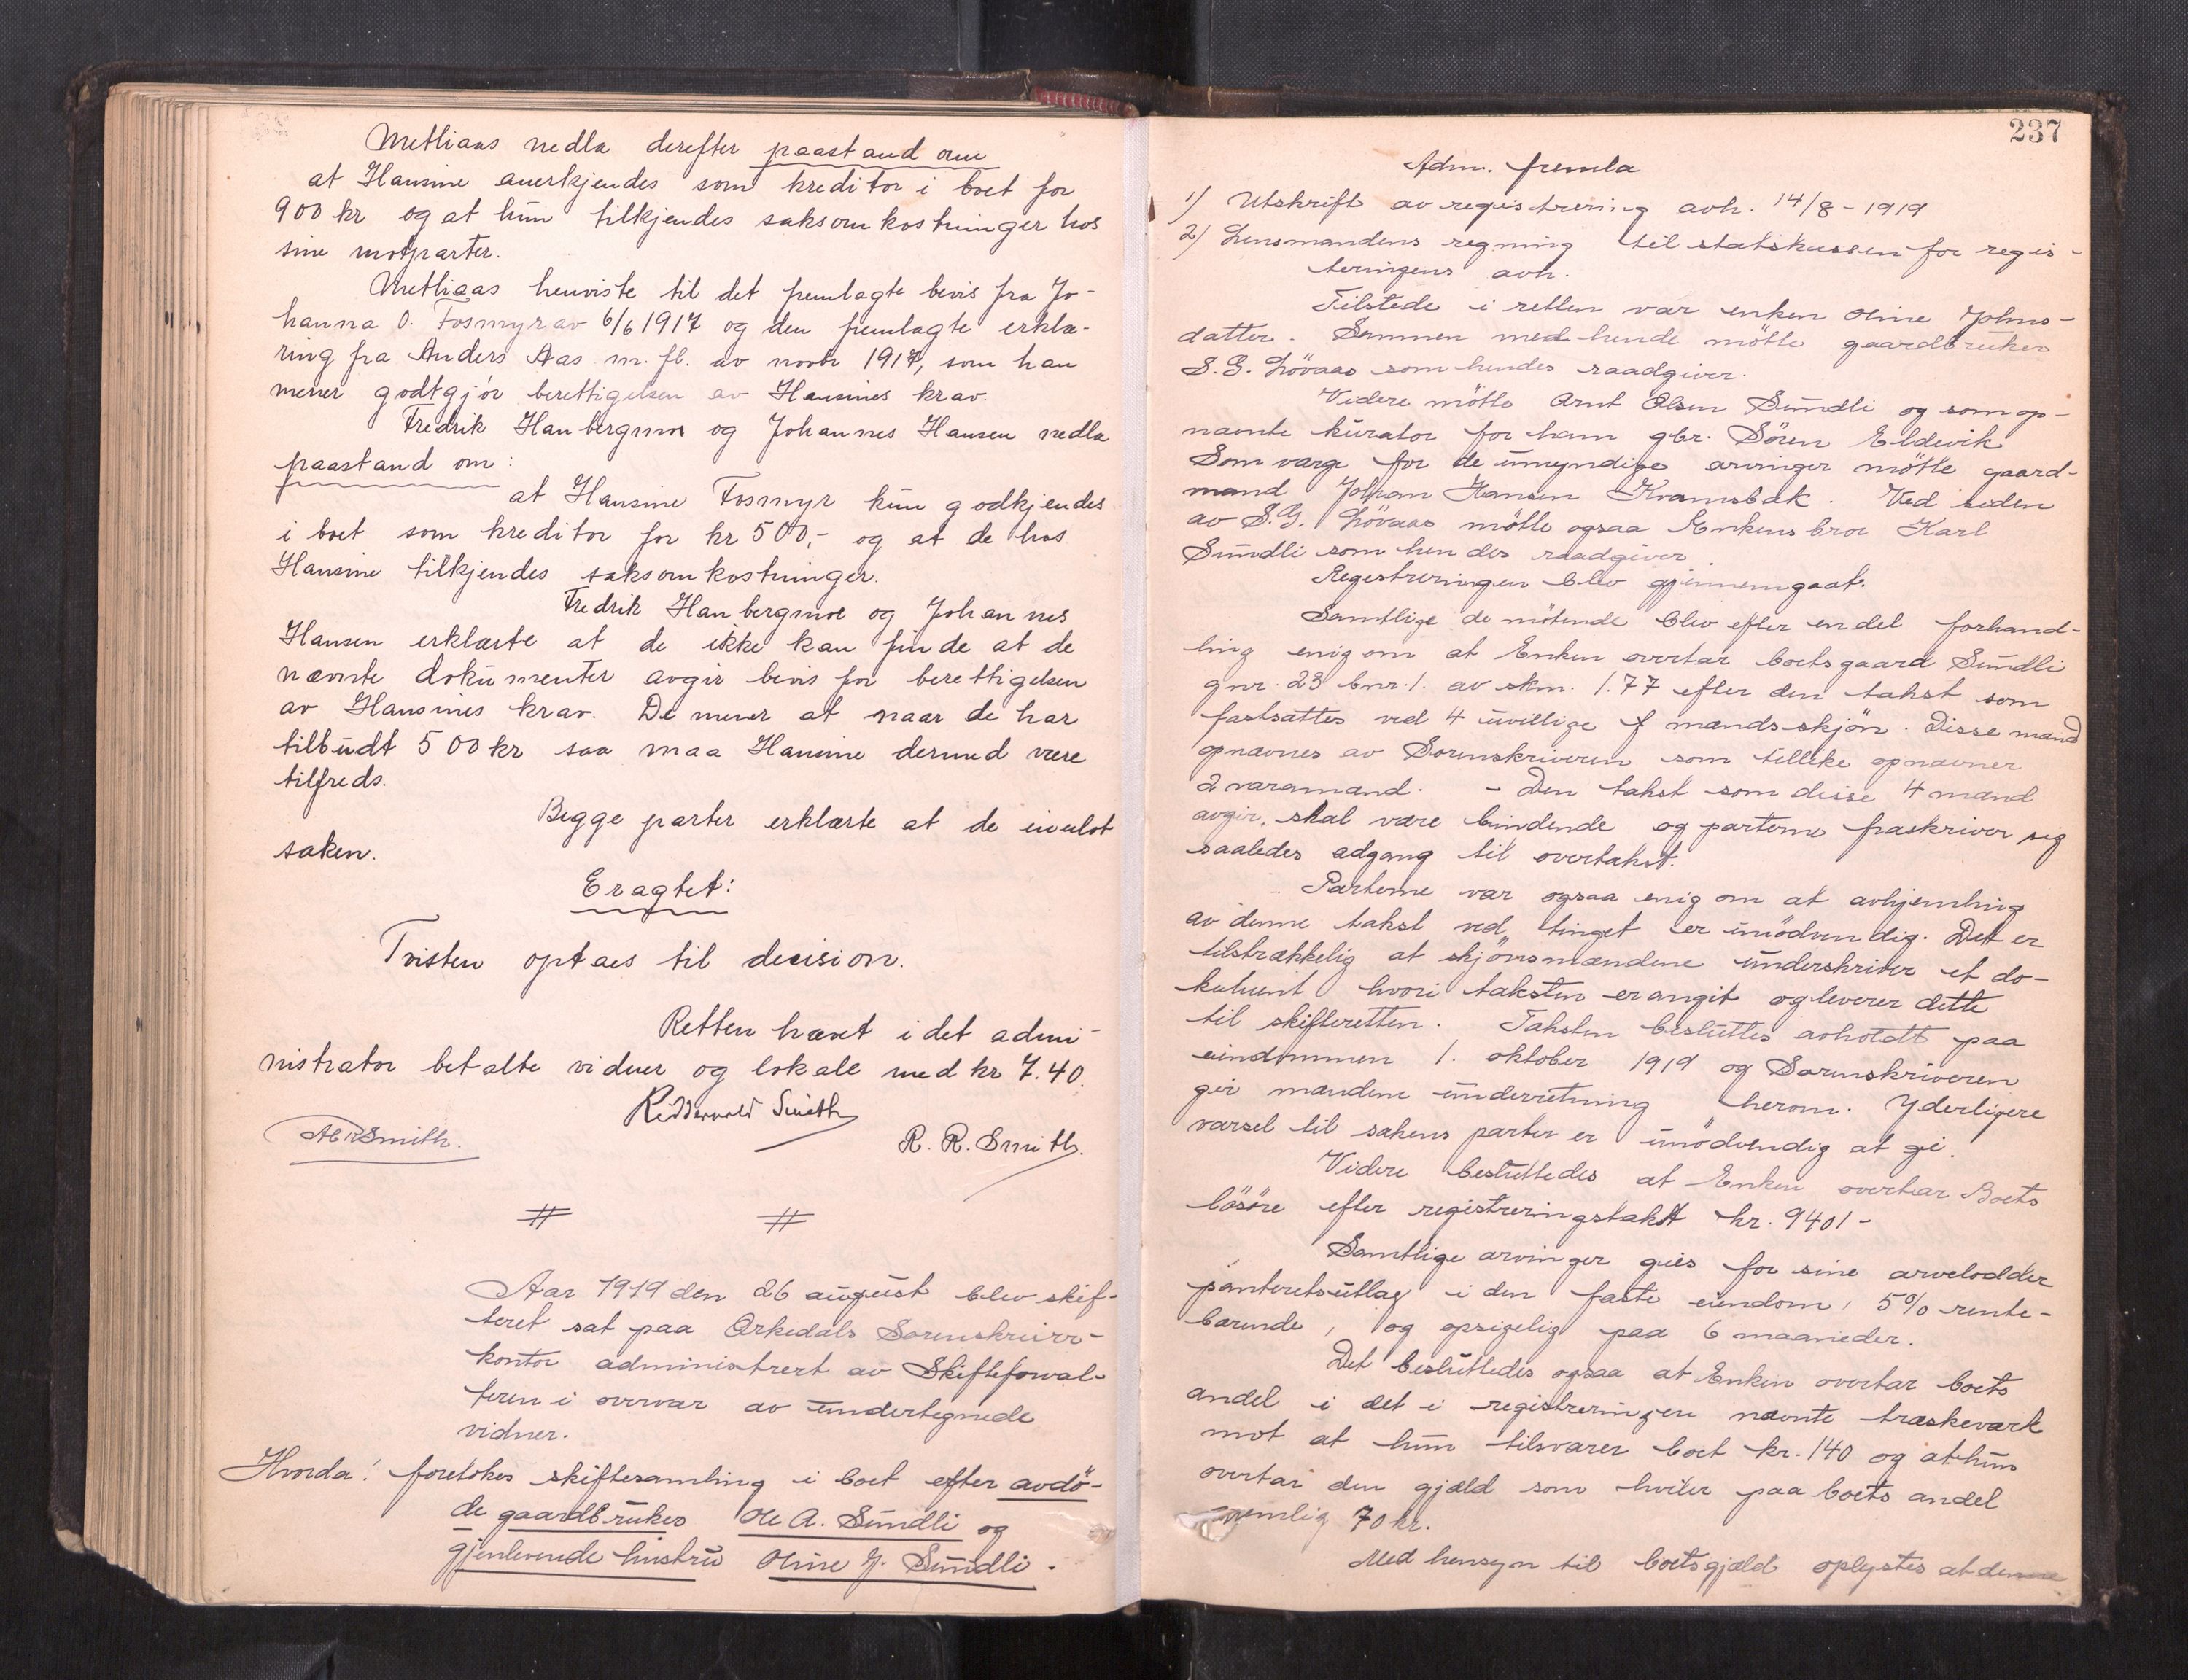 Metliaas nedla derefter paastand om
at Hansine anerkjendes som kreditor i boet for
900 kr og at hun tilkjendes saksomkostninger hos
sine motparter.
Metliaas henviste til det fremlagte bevis fra Jo-
hanna O. Fosmyr av 6/6 1917 og den fremlagte erklæ-
ring fra Anders Aas m. fl. av novbr 1917, som han
mener godtgjør berettigelsen av Hansines krav.
Fredrik Haubergmoe og Johannes Hansen nedla
paastand om:
at Hansine Fosmyr kun godkjendes
i boet som kreditor for kr 500,- og at de hos
Hansine tilkjendes saksomkostninger.
Fredrik Haubergmoe og Johannes
Hansen erklærte at de ikke kan finde at de
nævnte dokumenter avgir bevis for berettigelsen
av Hansines krav. De mener at naar de har
tilbudt 500 kr saa maa Hansine dermed være
tilfreds.
Begge parter erklærte at de
saken.
Eragtet:
Tvisten optaes til decision.
Retten hævet idet admi-
nistrator betalte vidner og lokale med kr 7.40.
Ridderwold Smith
Smith.
R. R. Smith.
# #
Aar 1919 den 26 august blev skif-
teret sat paa Orkedals Sorenskriver-
kontor administrert av Skifteforval-
teren i overvær av undertegnede
vidner.
Hvorda! foretokes skiftesamling i boet efter avdö-
de gaardbruker Ole A. Sundli og
gjenlevende hustru Oline J. Sundli.
237
Adm. fremla
1) Utskrift av registrering avh. 14/8-1919
2) Lensmandens regning til statskassen for regis-
teringens avh.
Tilstede i retten var enken Oline Johns-
datter. Sammen med hende mötte gaardbruker
S. G. Lövaas som hendes raadgiver.
Videre mötte Arnt Olsen Sundli og som op-
nævnte kurator for ham gbr. Sören Eldevik
Som værge for de umyndige arvinger mötte gaard-
mand Johan Hansen Kvamsbak. Ved siden
av S. G. Lövaas mötte ogsaa Enkens bror Karl
Sundli som hendes raadgiver.
Registreringen blev gjennemgaat.
Samtlige de mötende blev efter endel forhand-
ling enig om at Enken overtar boets gaard Sundli
gnr. 23 bnr. 1. av skm. 1.77 efter den takst som
fastsattes ved 4 uvillige mænds skjön. Disse mænd
opnævnes av Sorenskriveren som tillike opnævner
2 varamænd. - Den takst som disse 4 mænd
avgir, skal være bindende og parterne fraskriver sig
saaledes adgang til overtakst.
Parterne var ogsaa enig om at avhjemling
av denne takst ved tinget er unödvendig. Det er
tilstrækkelig at skjönsmændene underskriver et do-
kument hvori taksten er angit og leverer dette
til skifteretten. Taksten besluttes avholdt paa
eiendommen 1. oktober 1919 og Sorenskriveren
gir mændene underretning herom. Yderligere
varsel til sakens parter er unödvendig at gi.
Videre besluttedes at Enken overtar Boets
lösöre efter registreringstakst kr. 9401-
Samtlige arvinger gies for sine arvelodder
panteretsutlæg i den faste eiendom, 5% rente-
bærende, og opsigelig paa 6 maaneder.
Det besluttedes ogsaa at Enken overtar boets
andel i det i registreringen nævnte træskeværk
mot at hun tilsvarer boet kr. 140 og at hun
overtar den gjæld som hviler paa boets andel
nemlig 70 kr.
Med hensyn til boets gjæld oplystes at denne